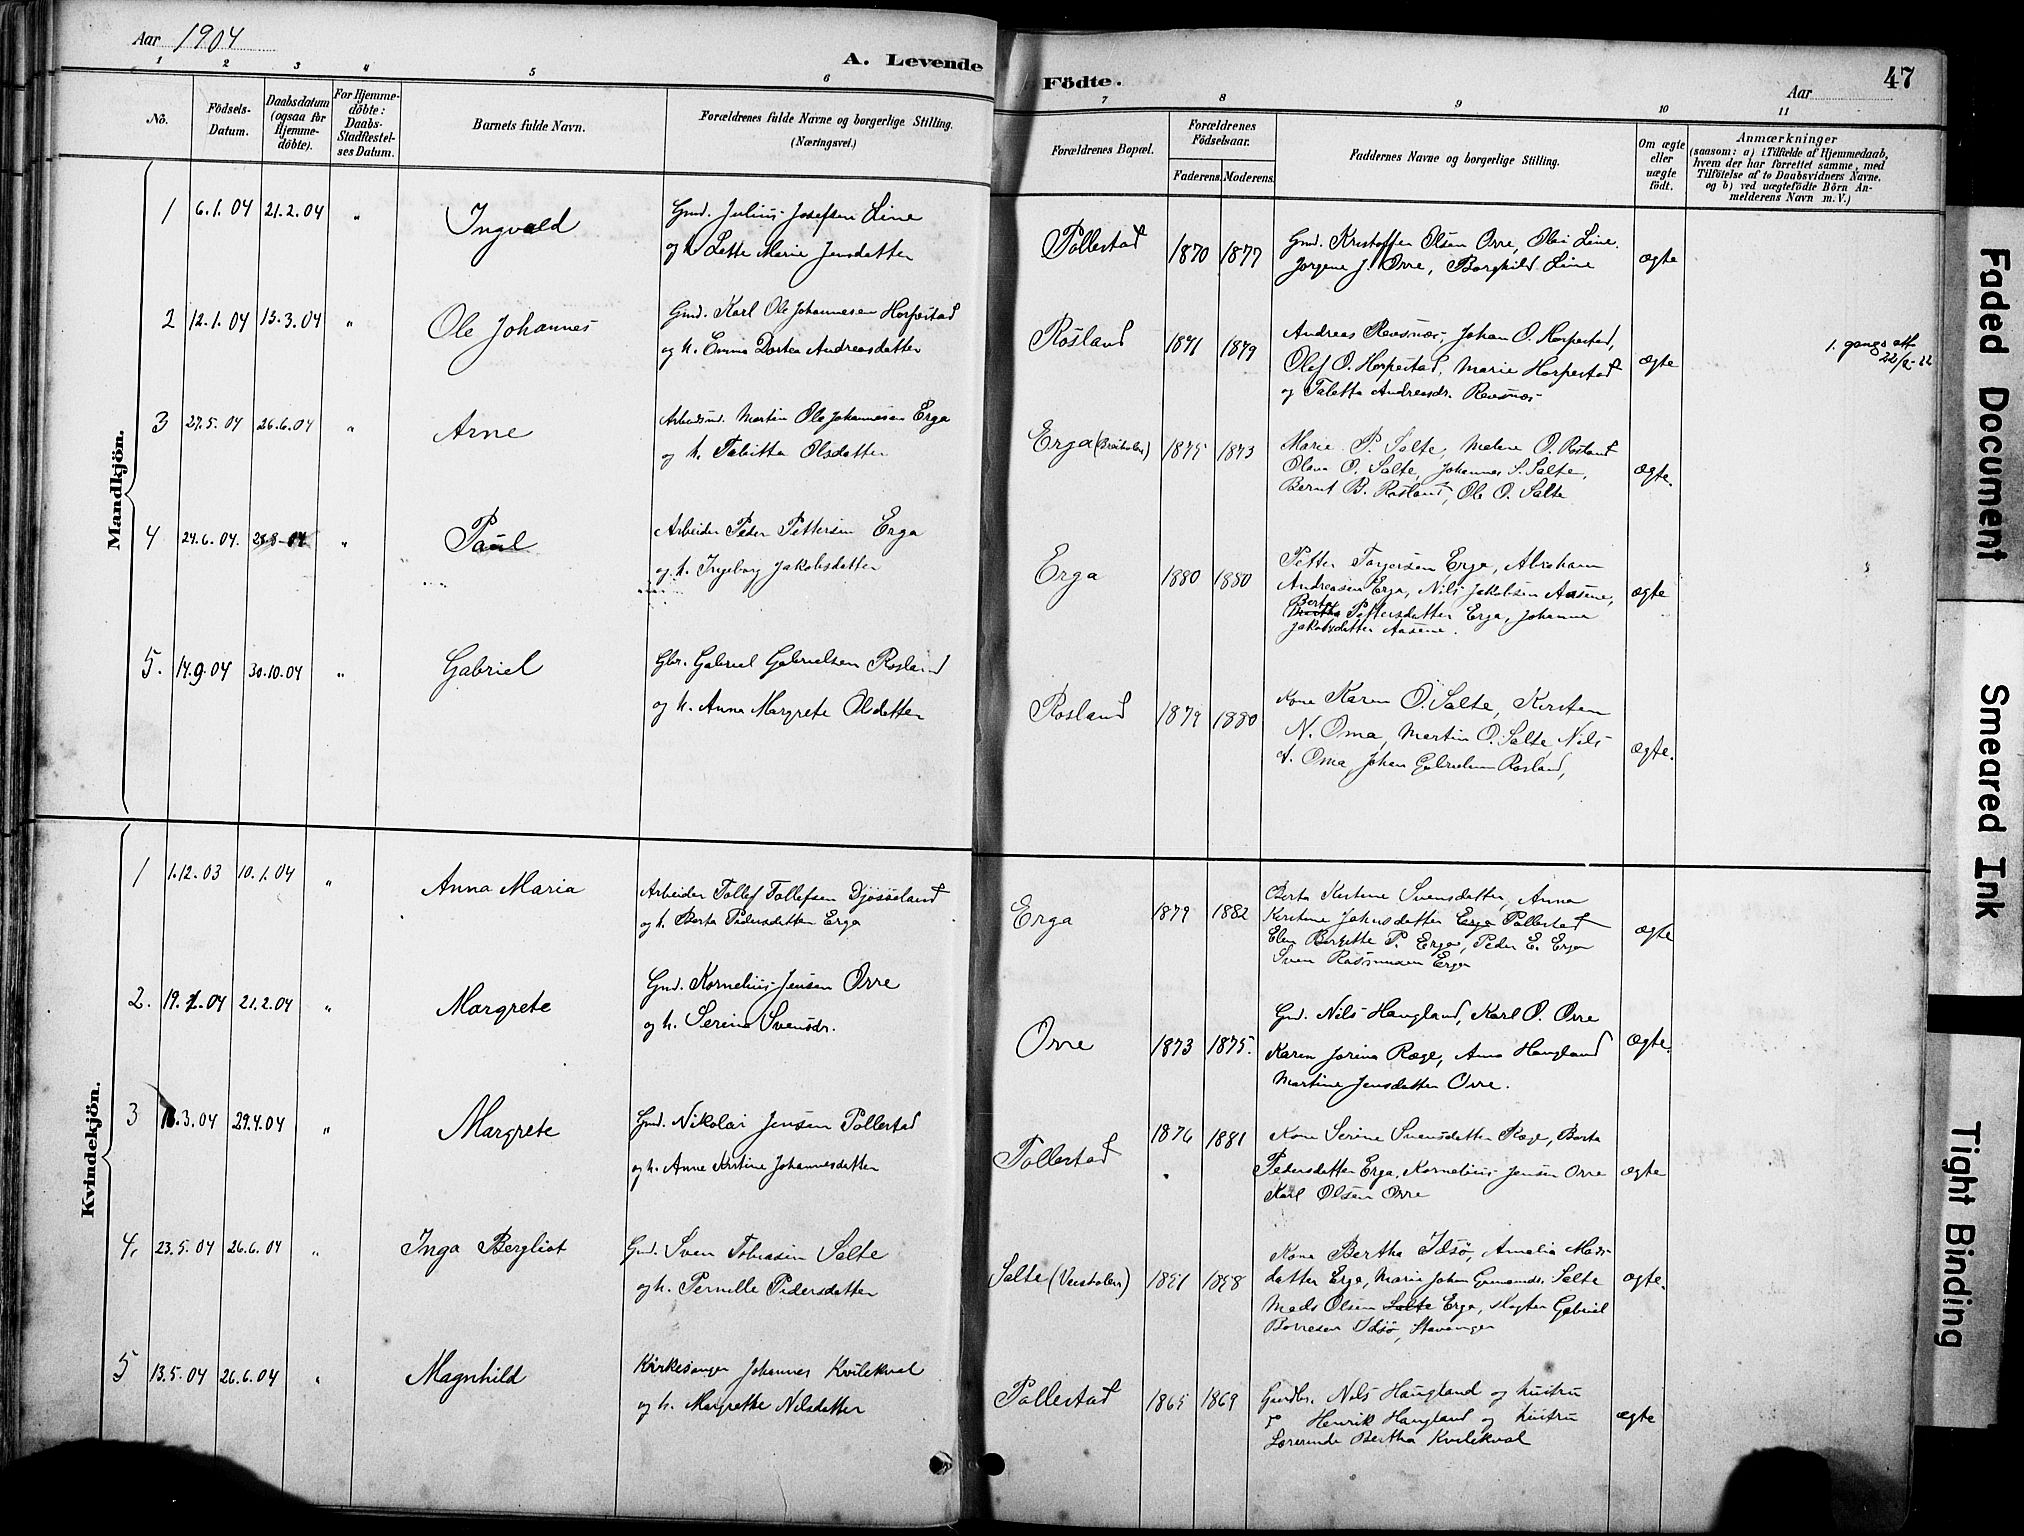 Aar 1904
A. Levende Födte.
Aar
47
1 2 3 4 5 6 7 8 9 10 11
No.
Födsels-Datum.
Daabsdatum (ogsaa for Hjemme-döbte).
For Hjemme-döbte: Daabs-Stadfestel-ses Datum.
Barnets fulde Navn.
Forældrenes fulde Navne og borgerlige Stilling. (Næringsvei.)
Forældrenes Bopæl.
Forældrenes Födselsaar.
Faderens. Moderens.
Faddernes Navne og borgerlige Stilling.
Om ægte eller uægte födt.
Anmærkninger
(saasom: a) i Tilfælde af Hjemmedaab,
hvem der har forrettet samme, med
Tilföielse af to Daabsvidners Navne.
og b) ved uægtefödte Börn An-
melderens Navn m. V.)
Mandkjön.
1 6.1.04 21.2.04 " Ingvald
Gmd. Julius Josefsen Line
og h. Lette Marie Jensdatter
Pollestad 1870 1877
Gmd. Kristoffer Olsen Orre, Olai Line.
Jorgene J. Orre, Borghild Line
ægte
2 12.1.04 13.3.04 " Ole Johannes
Gmd. Karl Ole Johannesen Horpestad
og h. Emma Dortea Andreasdatter
Rosland 1871 1879
Andreas Revsnæs, Johan O. Horpestad,
Olaf O. Horpestad, Marie Horpestad
og Taletta Andreasdr. Revsnæs
ægte
1. gangs att 22/2-22
3 27.5.04 26.6.04 " Arne
Arbeidsmd. Martin Ole Johannesen Erga
og h. Tabitta Olsdatter
Erga 1875 1873
Marie P. Salte, Malene O. Rosland
Olava O. Salte, Johannes S. Salte,
Bernt B. Rosland, Ole O. Salte
ægte.
4 24.6.04. 28.8-04 " Paul
Arbeider Peder Pettersen Erga
og h. Ingeborg Jakobsdatter
Erga 1880 1880
Petter Torgersen Erga, Abraham
Andreasen Erga, Nils Jakobsen Aasene,
Berta Pettersdatter Erga, Johanne
Jakobsdatter Aasene.
ægte
5. 17.9.04 30.10.04 " Gabriel
Gbr. Gabriel Gabrielsen Rosland
og h. Anna Margrete Olsdatter
Rosland 1879 1880
Kone Karen O. Salte, Kirsten
N. Oma, Martin O. Salte, Nils
A. Oma, Johan Gabrielsen Rosland,
ægte.
Kvindekjön.
1 1.12.03 10.1.04 " Anna Maria
Arbeider Tollef Tollefsen Djösøeland
og h. Berta Pedersdatter Erga
Erga 1879 1882
Berta Kristine Svensdatter, Anna
Kirstine Johnsdatter Erga Pollestad
Elen Bergitte P. Erga, Peder E. Erga
Sven Rasmussen Erga
ægte
2. 19.1.04 21.2.04 " Margrete
Gmd. Kornelius Jensen Orre
og h. Serina Svensdr.
Orre 1873 1875.
Gmd. Nils Haugland, Karl O. Orre
Karen Jorina Ræge, Anna Haugland
Martine Jensdatter Orre.
ægte.
3 16.3.04 29.4.04 " Margrete
Gmd. Nikolai Jensen Pollestad
og h. Anne Kristine Johannesdatter
Pollestad 1876 1881
Kone Serine Svensdatter Ræge, Berta
Pedersdatter Erga, Kornelius Jensen Orre
Karl Olsen Orre
ægte
4. 23.5.04 26.6.04 " Inga Bergliot
Gmd. Sven Tobiasen Salte
og h. Pernille Pedersdatter
Salte
Kone Bertha Idsø, Amalia Mads
datter Erga, Marie Johan Salte
Mads Olsen Salte Erga, slagter Gabriel
Borresen Idsø, Stavanger
ægte.
5 13.5.04 26.6.04 " Magnhild
Kirkesanger Johannes Kvilekval
og h. Margrethe Nilsdatter
Pollestad 1865 1869
Gmdbr. Nils Haugland og hustru
Henrik Haugland og hustru
Lærerinde Bertha Kvilekval
ægte
Faded Document
Smeared Ink
Tight Binding